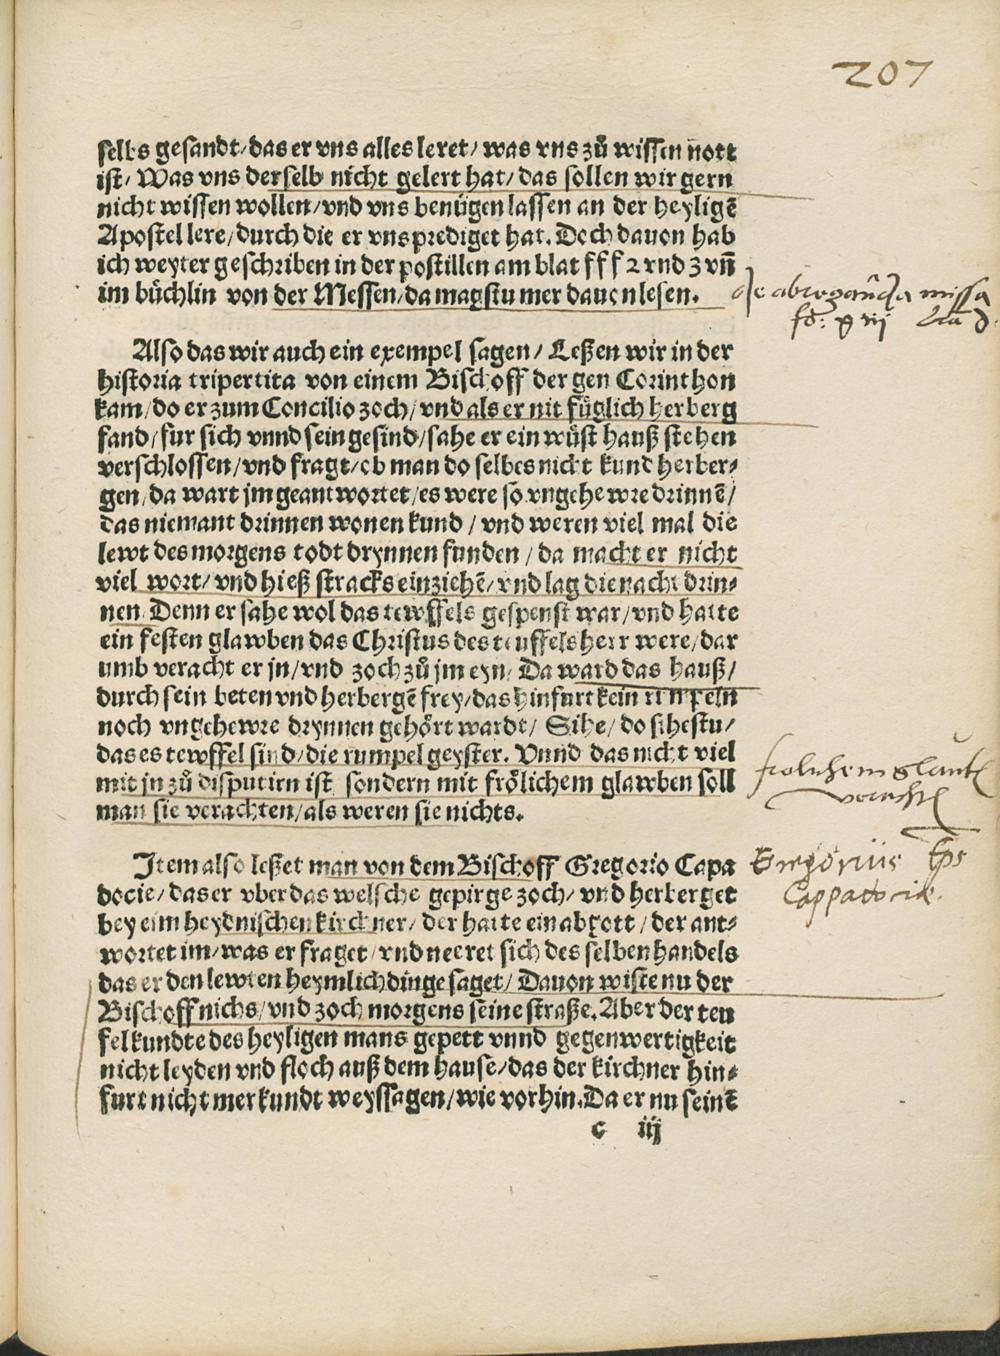 207
selbs gesandt/das er vns alles leret/was vns zů wissen nott
ist/Was vns derselb nicht gelert hat/das sollen wir gern
nicht wissen wollen/vnd vns benügen lassen an der heyligē
Apostel lere/durch die er vns prediget hat. Doch dauon hab
ich weyter geschriben in der postillen am blat fff 2 vnd 3 vn̄
im büchlin von der Messen/da magstu mer dauon lesen.
de abroganda missa
Also das wir auch ein exempel sagen/Leßen wir in der
historia tripertita von einem Bischoff der gen Corinthon
kam/do er zum Concilio zoch/vnd als er nit füglich herberg
fand/fur sich vnnd sein gesind/sahe er ein wüst hauß stehen
verschlossen/vnd fragt/ob man do selbes nicht kund herber⸗
gen/da wart jm geantwortet/es were so vngehewre drinnē/
das niemant drinnen wonen kund/vnd weren viel mal die
lewt des morgens todt drynnen funden/da macht er nicht
viel wort/vnd hieß stracks einziehē/vnd lag die nacht drin⸗
nen. Denn er sahe wol das tewffels gespenst war/vnd hatte
ein festen glawben das Christus des teuffels herr were/dar
umb veracht er jn/vnd zoch zů jm eyn/Da ward das hauß/
durch sein beten vnd herbergē frey/das hinfurt kein rumpeln
noch vngehewre drynnen gehört wardt/Sihe/do sihestu/
das es tewffel sind/die rumpel geyster. Vnnd das nicht viel
mit jn zů disputirn ist sondern mit frölichem glawben soll
man sie verachten/als weren sie nichts.
Item also leßet man von dem Bischoff Gregorio Capa
docie/das er vber das welsche gepirge zoch/vnd herberget
bey eim heydnischen kirchner/der hatte ein abgott/der ant⸗
wortet im/was er fraget/vnd neeret sich des selben handels
das er den lewten heymlich dinge saget/Dauon wiste nu der
Bischoff nichs/vnd zoch morgens seine straße. Aber der teu
fel kundte des heyligen mans gepett vnnd gegenwertigkeit
nicht leyden vnd floch auß dem hause/das der kirchner hin⸗
furt nicht mer kundt weyssagen/wie vorhin. Da er nu seinē
Gregorius Eps
Cappadocie.
c iij